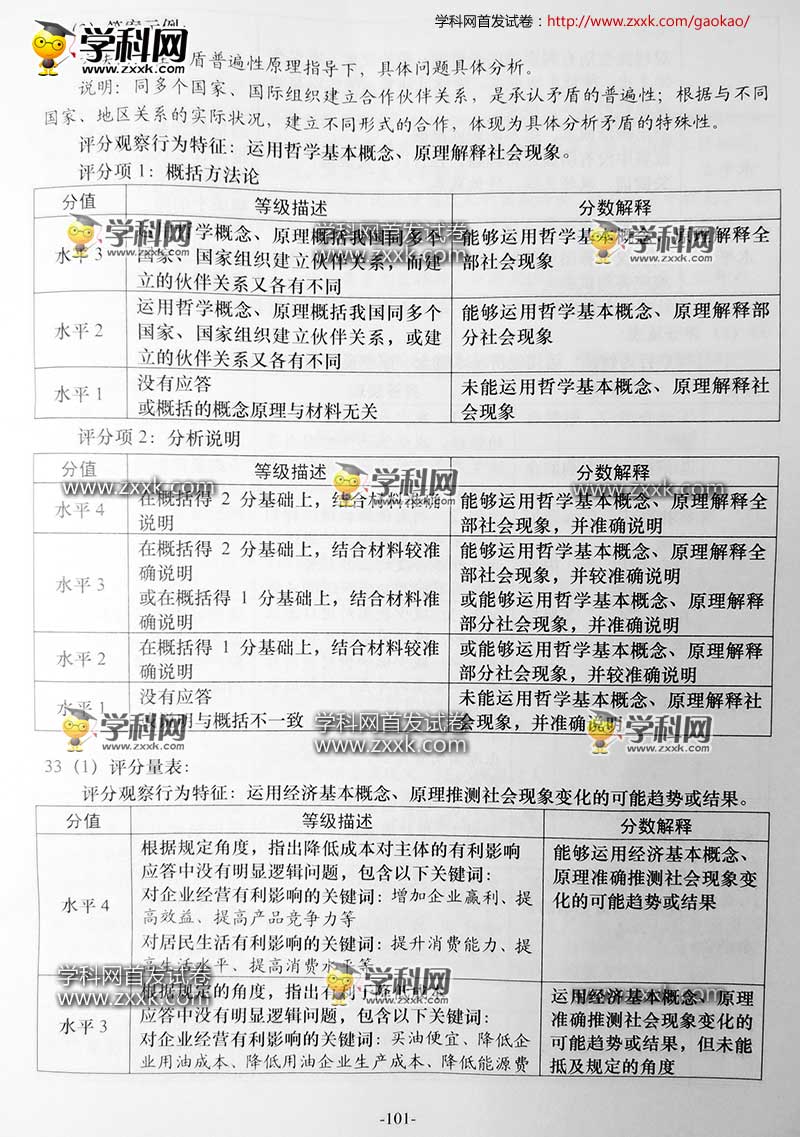 学科网首发试卷：http://www.zxxk.com/gaokao/
学科网
www.zxxk.com
（2）答案示例：
盾普遍性原理指导下，具体问题具体分析。
说明：同多个国家、国际组织建立合作伙伴关系，是承认矛盾的普遍性；根据与不同
国家、地区关系的实际状况，建立不同形式的合作，体现为具体分析矛盾的特殊性。
评分观察行为特征：运用哲学基本概念、原理解释社会现象。
评分项1：概括方法论
分值 等级描述 分数解释
水平3
运用哲学概念、原理概括我国同多个
国家、国家组织建立伙伴关系，而建
立的伙伴关系又各有不同
能够运用哲学基本概念、原理解释全
部社会现象
学科网
www.zxxk.com
学科网首发试卷
www.zxxk.com
学科网
www.zxxk.com
水平2
运用哲学概念、原理概括我国同多个
国家、国家组织建立伙伴关系，或建
立的伙伴关系又各有不同
能够运用哲学基本概念、原理解释部
分社会现象
水平1
没有应答
或概括的概念原理与材料无关
未能运用哲学基本概念、原理解释社
会现象
评分项2：分析说明
分值 等级描述 分数解释
学科网首发试卷
www.zxxk.com
学科网
www.zxxk.com
学科网首发试卷
www.zxxk.com
水平4
在概括得 2 分基础上，结合材料准确
说明
能够运用哲学基本概念、原理解释全
部社会现象，并准确说明
水平3
在概括得 2 分基础上，结合材料较准
确说明
或在概括得 1 分基础上，结合材料准
确说明
能够运用哲学基本概念、原理解释全
部社会现象，并较准确说明
或能够运用哲学基本概念、原理解释
部分社会现象，并准确说明
水平2
在概括得 1 分基础上，结合材料较准
确说明
或能够运用哲学基本概念、原理解释
部分社会现象，并较准确说明
水平1
没有应答
说明与概括不一致
未能运用哲学基本概念、原理解释社
会现象，并准确说明
学科网
www.zxxk.com
学科网首发试卷
www.zxxk.com
学科网
www.zxxk.com
33（1）评分量表：
评分观察行为特征：运用经济基本概念、原理推测社会现象变化的可能趋势或结果。
分值 等级描述 分数解释
水平4
根据规定角度，指出降低成本对主体的有利影响
应答中没有明显逻辑问题，包含以下关键词：
对企业经营有利影响的关键词：增加企业赢利、提
高效益、提高产品竞争力等
对居民生活有利影响的关键词：提升消费能力、提
高生活水平、提高消费水平等
能够运用经济基本概念、
原理准确推测社会现象变
化的可能趋势或结果
学科网首发试卷
www.zxxk.com
学科网
www.zxxk.com
学科网首发试卷
www.zxxk.com
水平3
根据规定的角度，指出有利于降低成本
应答中没有明显逻辑问题，包含以下关键词：
对企业经营有利影响的关键词：买油便宜、降低企
业用油成本、降低用油企业生产成本、降低能源费
运用经济基本概念、原理
准确推测社会现象变化的
可能趋势或结果，但未能
抵及规定的角度
-101-